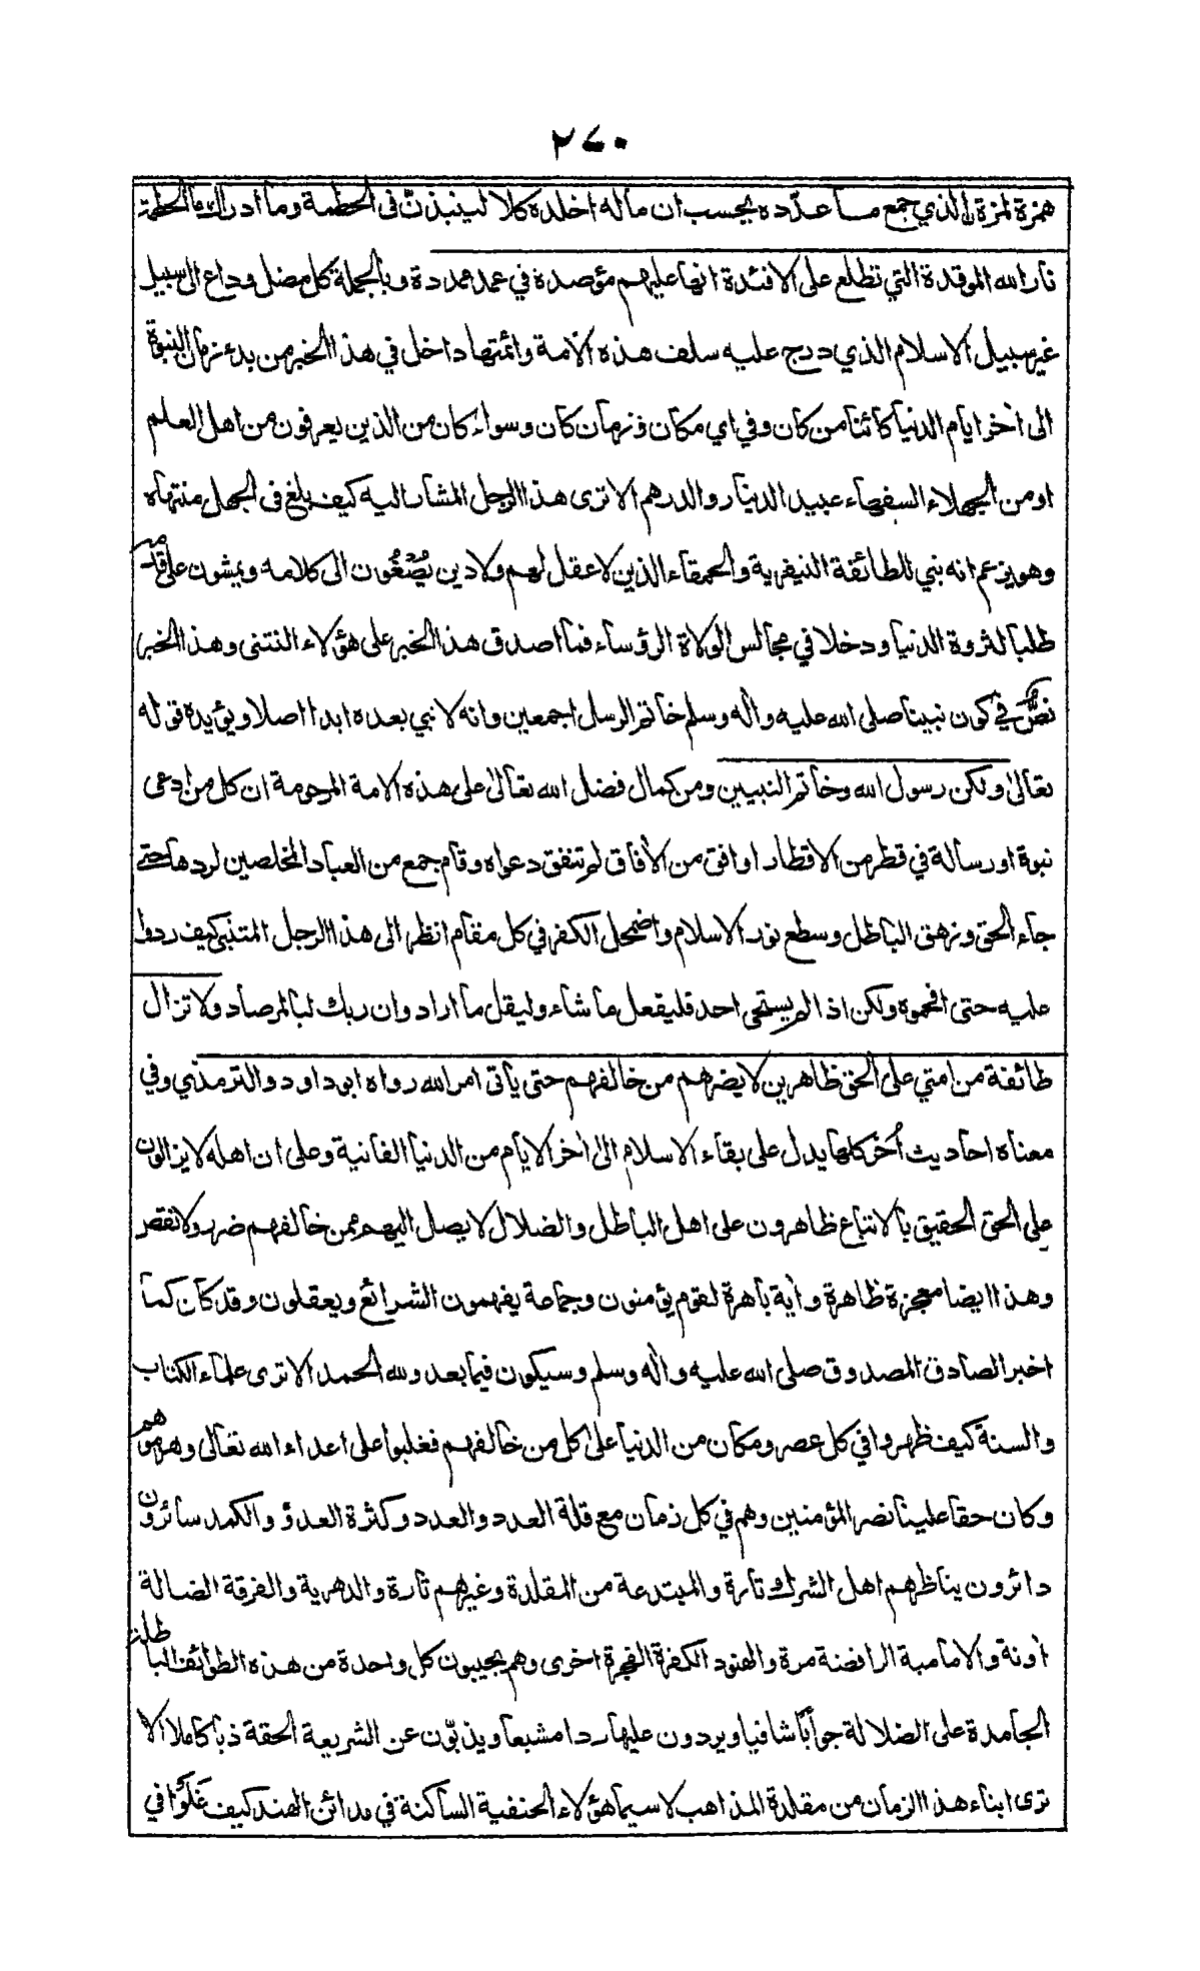 ٢٧٠
همزة لمزة الذي جمع مالا عدّده يحسب ان ماله اخلده كلا لينبذنّ فى الحطمة وما أدراك ما الحطمة
نار الله الموقدة التي تطلع على الافئدة انها عليهم مؤصدة في عمد ممددة وبالجملة كل مضل وداع الى سبيل
غير سبيل الاسلام الذي درج عليه سلف هذه الأمة وائمتها داخل في هذا الخبر من بدء زمان النبوة
الى أخر ايام الدنيا كائنا من كان وفي اي مكان وزمان كان وسواء كان من الذين يعرفون من اهل العلم
او من الجهلاء السفهاء عبيد الدينار والدرهم الا ترى هذا الرجل المشار اليه كيف بلغ فى الجهل منتهاه
وهو يزعم انه نبي للطائفة النيفرية والحمقاء الذين لا عقل لهم ولا دين يُصْغُون الى كلامه ويمشون على قدمه
طلبا لثروة الدنيا ودخلا في مجالس الولاة الرؤساء فما اصدق هذا الخبر على هؤلاء النتنى وهذا الخبر
نصٌّ في كون نبينا صلى الله عليه وأله وسلم خاتم الرسل اجمعين وانه لا نبي بعده ابدا اصلا ويؤيده قوله
تعالى ولكن رسول الله وخاتم النبيين ومن كمال فضل الله تعالى على هذه الامة المرحومة ان كل من ادعى
نبوة او رسالة في قطر من الاقطار او افق من الأفاق لم تنفق دعواه وقام جمع من العباد المخلصين لردها حتى
جاء الحق وزهق الباطل وسطع نور الاسلام واضمحل الكفر في كل مقام انظر الى هذا الرجل المتنبي كيف ردوا
عليه حتى افحموه ولكن اذا لم يستحى احد فليفعل ما شاء وليقل ما اراد وان ربك لبالمرصاد ولا تزال
طائفة من امتي على الحق ظاهرين لا يضرهم من خالفهم حتى يأتى امر الله رواه ابو داود والترمذي وفي
معناه احاديث أُخَر كلها يدل على بقاء الاسلام الى أخر الايام من الدنيا الفانية وعلى ان اهله لا يزالون
على الحق الحقيق بالاتباع ظاهرون على اهل الباطل والضلال لا يصل اليهم ممن خالفهم ضرر ولا نقص
وهذا ايضا معجزة ظاهرة وأية باهرة لقوم يؤمنون وجماعة يفهمون الشرائع ويعقلون وقد كان كما
اخبر الصادق المصدوق صلى الله عليه وأله وسلم وسيكون فيما بعد ولله الحمد الا ترى علماء الكتاب
والسنة كيف ظهروا في كل عصر ومكان من الدنيا على كل من خالفهم فغلبوا على اعداء الله تعالى وهزموهم
وكان حقا علينا نصر المؤمنين وهم في كل زمان مع قلة العدد والعدد وكثرة العدوّ والكمد سائرون
دائرون يناظرهم اهل الشرك تارة والمبتدعة من المقلدة وغيرهم تارة والدهرية والفرقة الضالة
أونة والامامية الرافضة مرة والهنود الكفرة الفجرة اخرى وهم يجيبون كل واحدة من هذه الطوائف الباطلة
الجامدة على الضلالة جوابًا شافيا ويردون عليها ردا مشبعا ويذبّون عن الشريعة الحقة ذبا كاملا الا
ترى ابناء هذا الزمان من مقلدة المذاهب لا سيما هؤلاء الحنفية الساكنة في مدائن الهند كيف غَلَوْا في